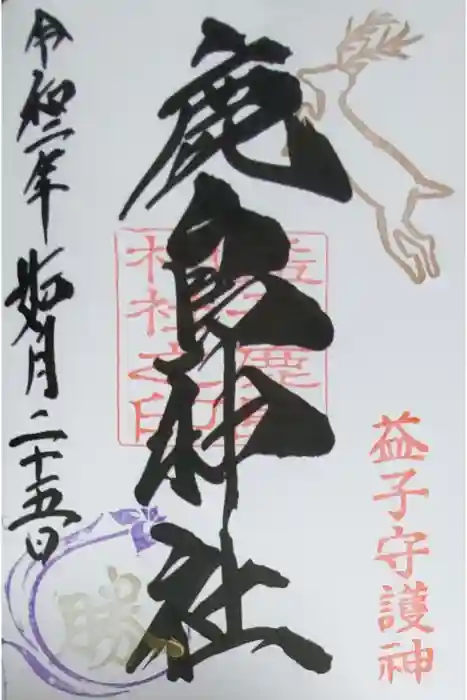 益子守護神
鹿島神社
社之印
令和二年如月二十五日
勝